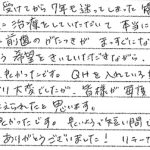 受けてから7年も迷ってしまった
に治療をしていただいて本当に
前歯のがたつきがまっすぐにな
う希望をきいていただきながら、
良かったです。QHを入れている
り大変でしたが、皆様が
えられたと思います。
よかったです。長いような短い間でし
ありがとうございました！リテーナ